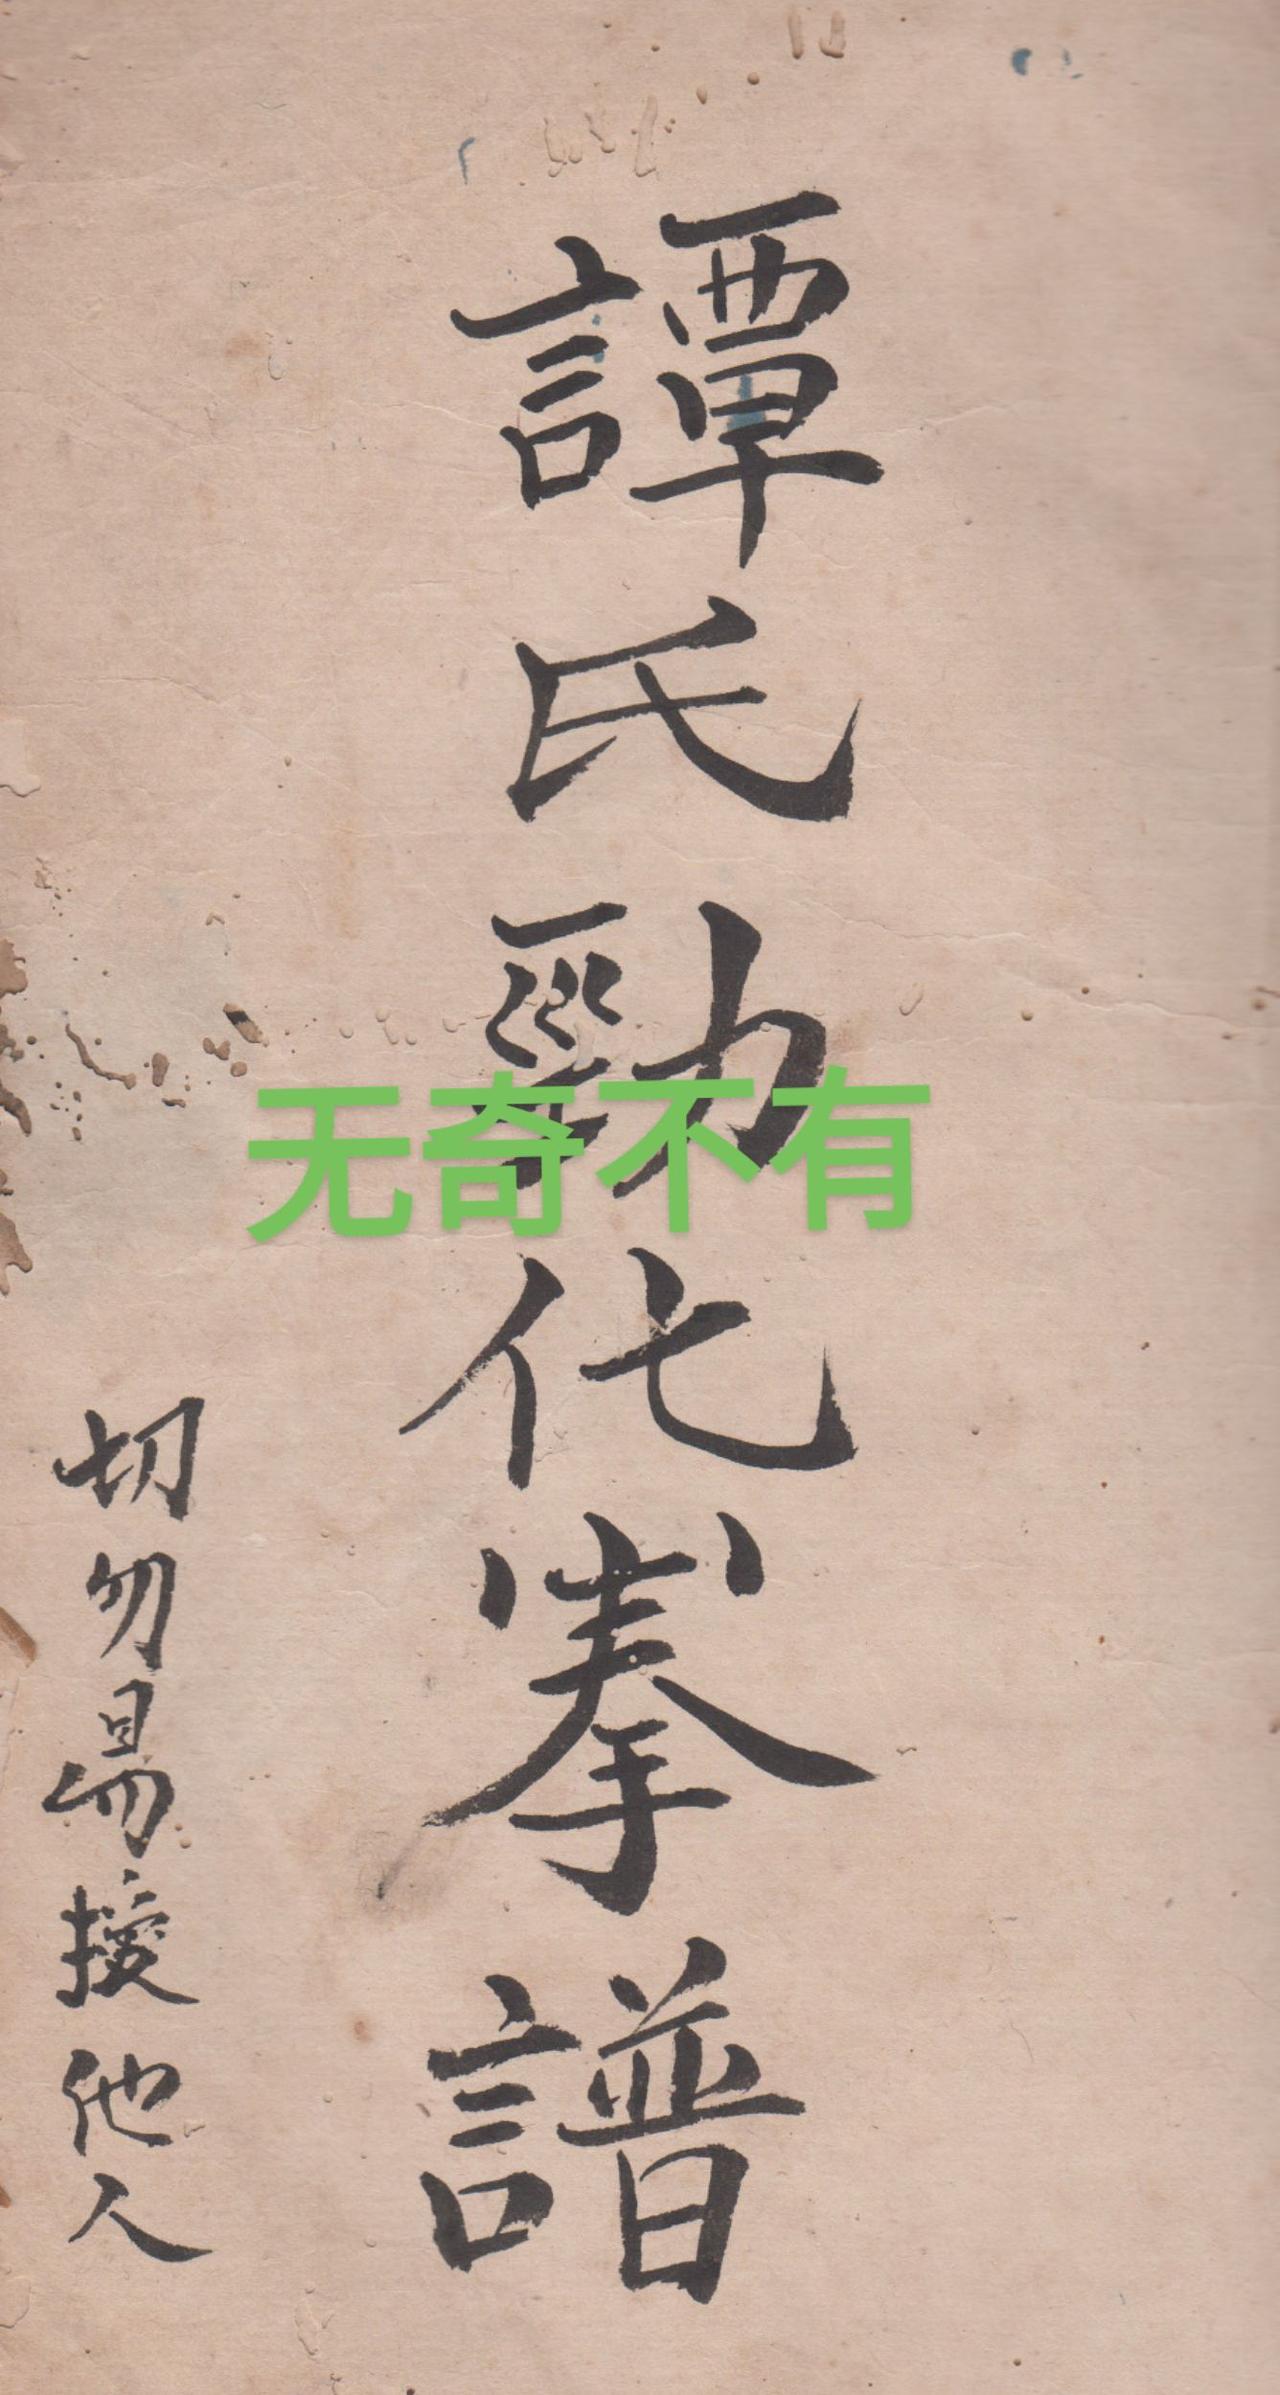 譚氏勁化拳譜
切勿易授他人
无奇不有